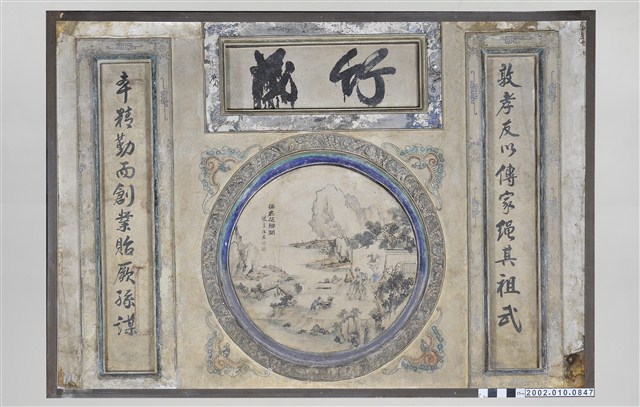 敦孝友以傳家繩其祖武
竹
本精勤而創業貽厥孫謀
2002.010.0847